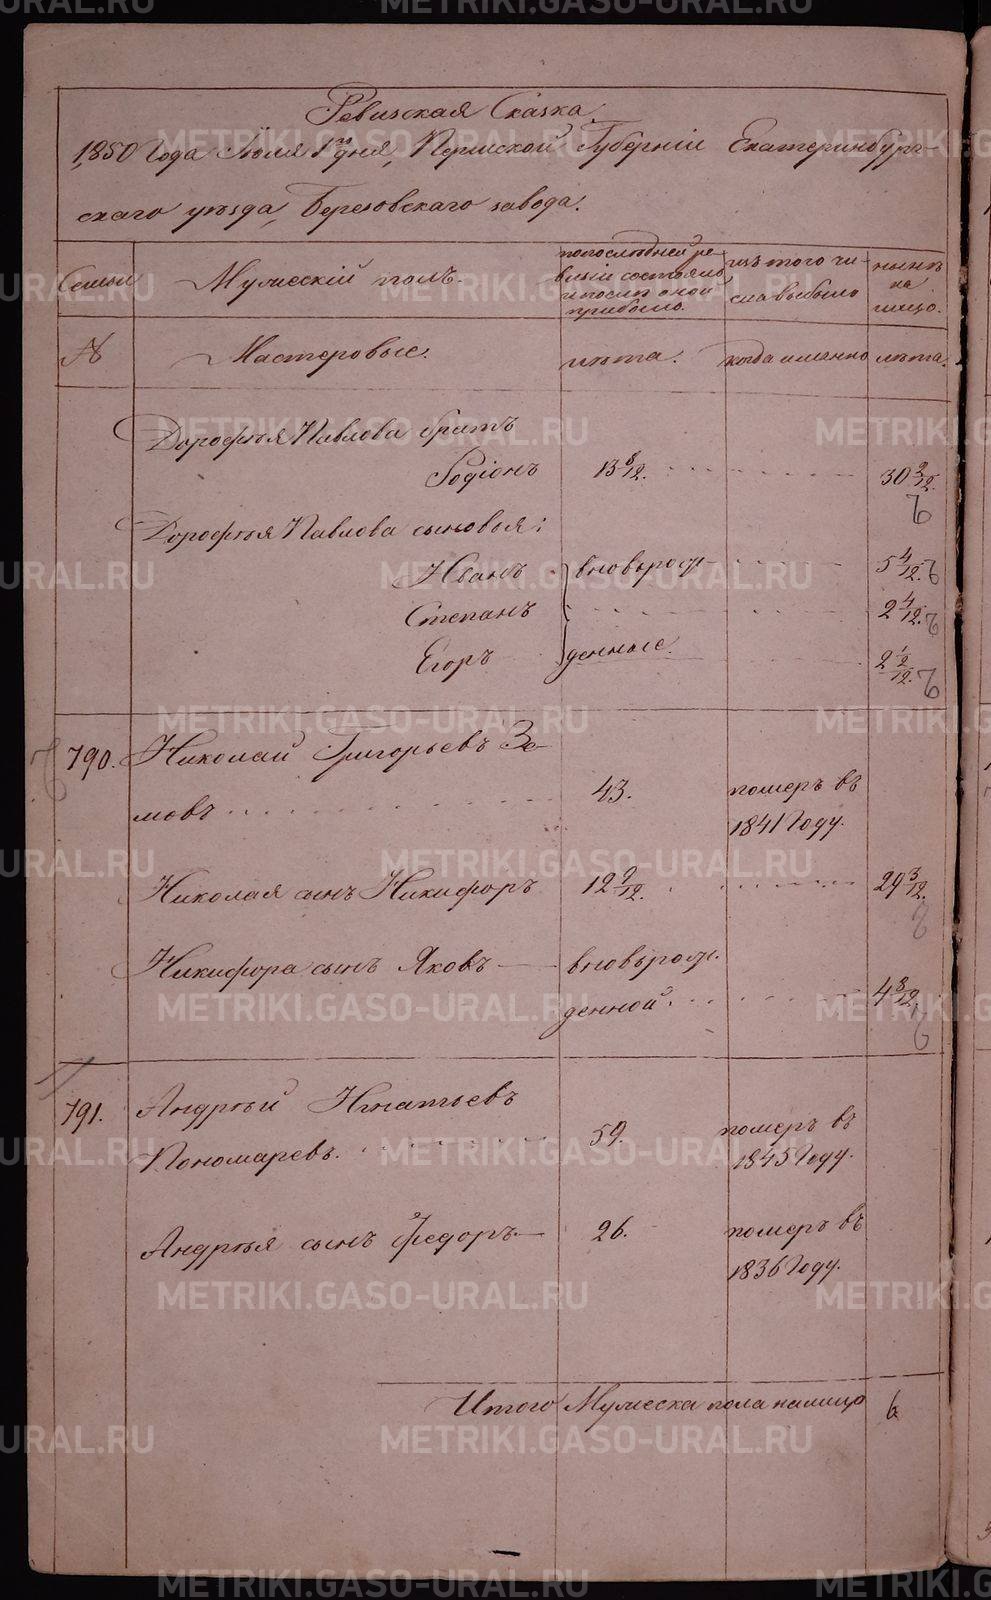 METRIKI.GASO-URAL.RU
Ревизская Сказка.
1850 Года Июля 1го дня, Пермской Губерніи Екатеринбург-
скаго уѣзда, Березовскаго завода.
Семьи
Мужескій полъ.
по последней ре-
визіи состояло
и после оной
прибыло.
изъ того чи-
сла выбыло
нынѣ
на
лицо.
№
Мастеровые.
лѣта.
когда именно
лѣта.
Дорофѣя Павлова братъ
Родіонъ 13 8/12. 30 2/12.
Дорофѣя Павлова сыновья:
Иванъ вновьрож- 5 4/12.
Степанъ 2 4/12.
Егоръ денные. 2/12.
790. Николай Григорьевъ Зо-
мовъ 43. померъ въ
1841 Году.
Николая сынъ Никифоръ 12 9/12. 29 3/12.
Никифора сынъ Яковъ — вновьрож-
денной. 4 8/12.
791. Андрѣй Игнатьевъ
Пономаревъ. 59. померъ въ
1845 Году.
Андрѣя сынъ Федоръ — 26. померъ въ
1836 Году.
Итого Мужеска пола налицо 6